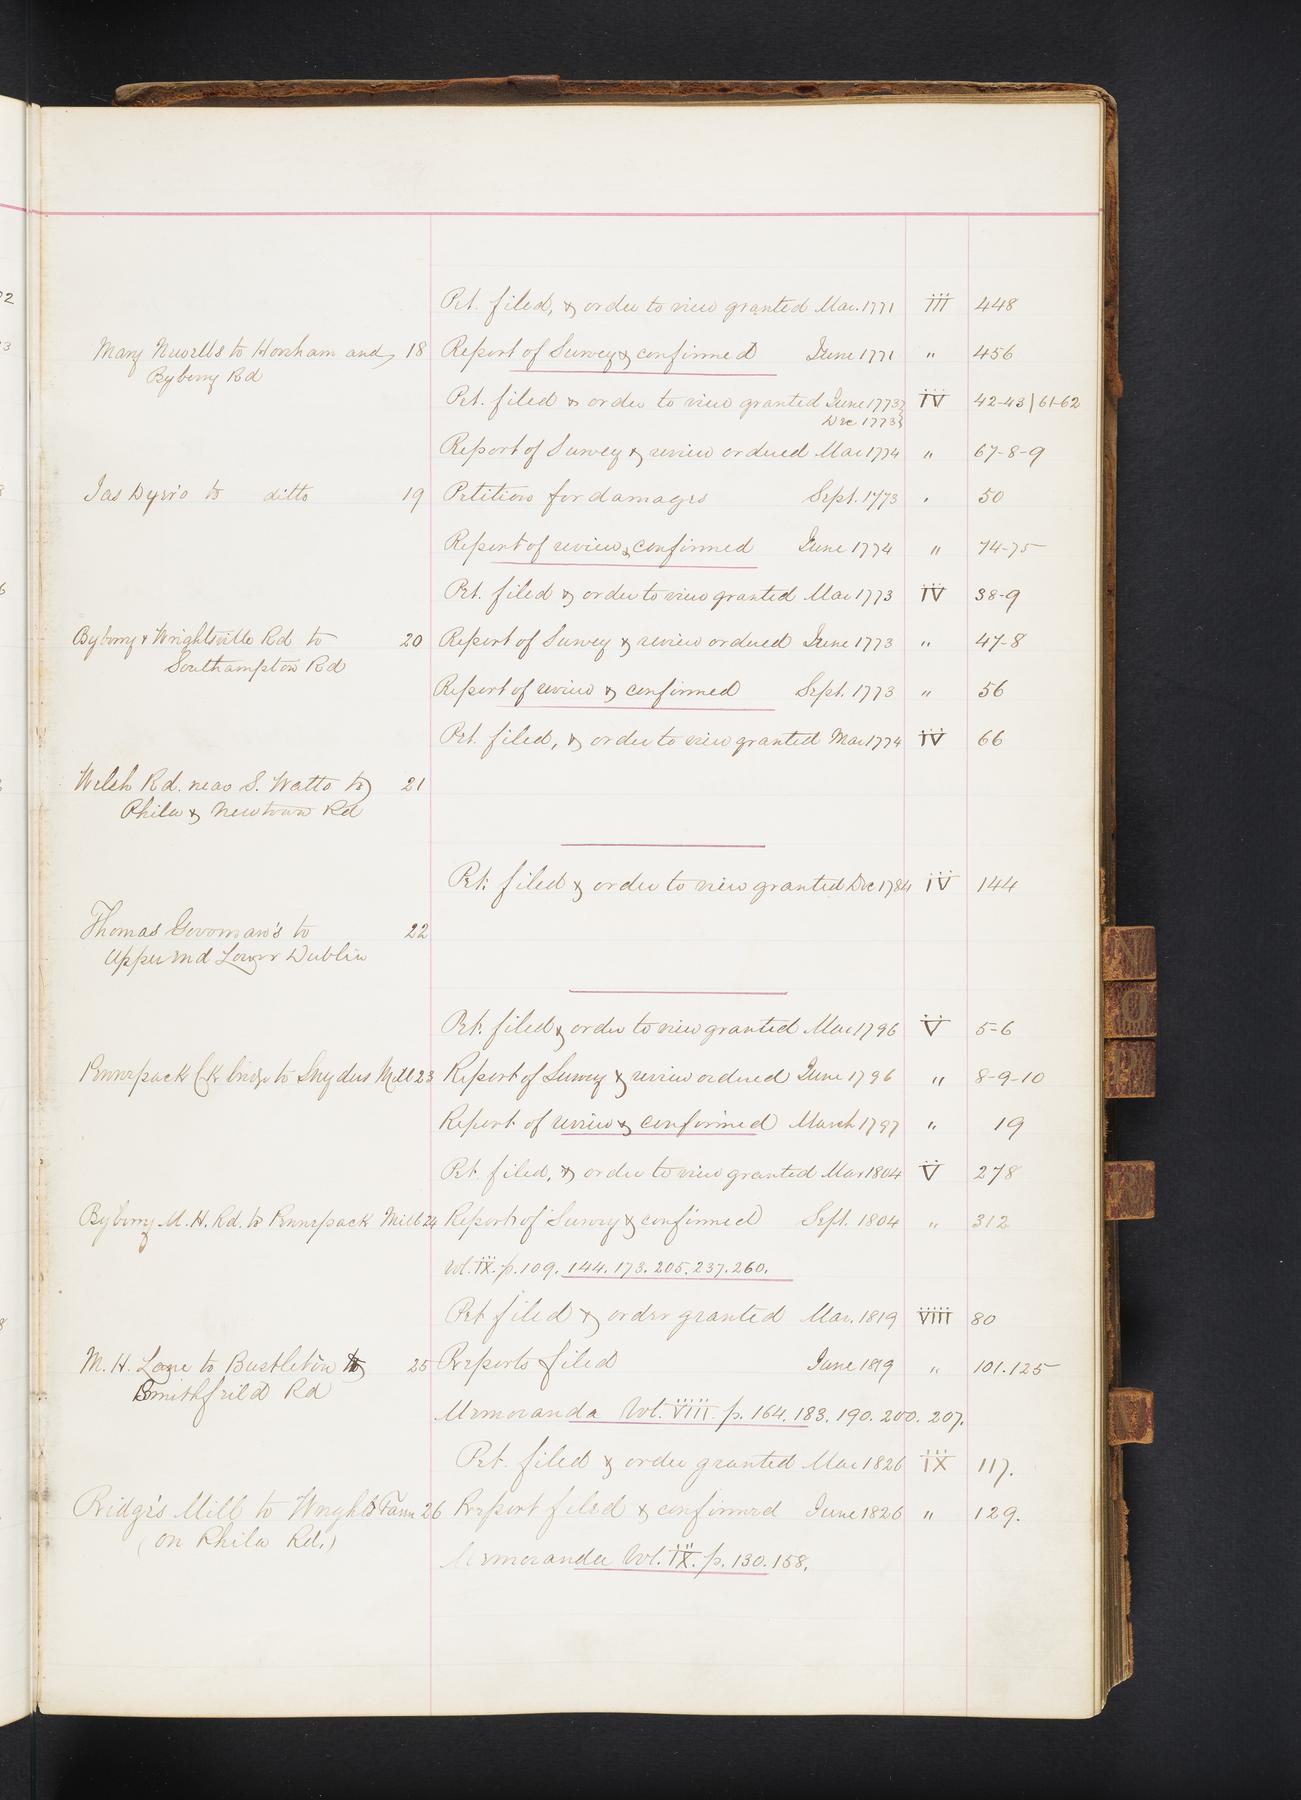 Pet. filed, & order to view granted Mar. 1771 III 448
Mary Newells to Horsham and 18 Report of Survey & confirmed June 1771 " 456
Byberry Rd
Pet. filed & order to view granted June 1773 IV 42-43|61-62
Dec 1773
Report of Survey & review ordered Mar 1774 " 67-8-9
Jas to ditto 19 Petition for damages Sept. 1773 . 50
Report of review & confirmed June 1774 " 74-75
Pet. filed & order to view granted Mar 1773 IV 38-9
Byberry & Wrightsville Rd to 20 Report of Survey & review ordered June 1773 " 47-8
Southampton Rd
Report of review & confirmed Sept. 1773 " 56
Pet. filed, & order to view granted Mar 1774 IV 66
Welsh Rd. near S. Watts to 21
Phila & Newtown Rd
Pet. filed & order to view granted Dec 1784 IV 144
Thomas to 22
Upper end Lower Dublin
Pet. filed & order to view granted Mar 1796 V 5-6
Pennepack Ck bridge to Snyders Mill 23 Report of Survey & review ordered June 1796 " 8-9-10
Report of review & confirmed March 1797 " 19
Pet. filed, & order to view granted Mar 1804 V 278
Byberry M. H. Rd. to Pennepack Mill 24 Report of Survey & confirmed Sept. 1804 " 312
Vol. IX. p. 109. 144. 173. 205. 237. 260.
Pet filed & order granted Mar. 1819 VIII 80
M. H. Lane to Bustleton to 25 Reports filed June 1819 " 101.125
Smithfield Rd
Memoranda Vol. VIII. p. 164. 183. 190. 200. 207.
Pet. filed & order granted Mar 1826 IX 117.
Ridge's Mill to Wright's Farm 26 Report filed & confirmed June 1826 " 129.
(on Phila Rd.)
Memoranda Vol. IX. p. 130. 158.